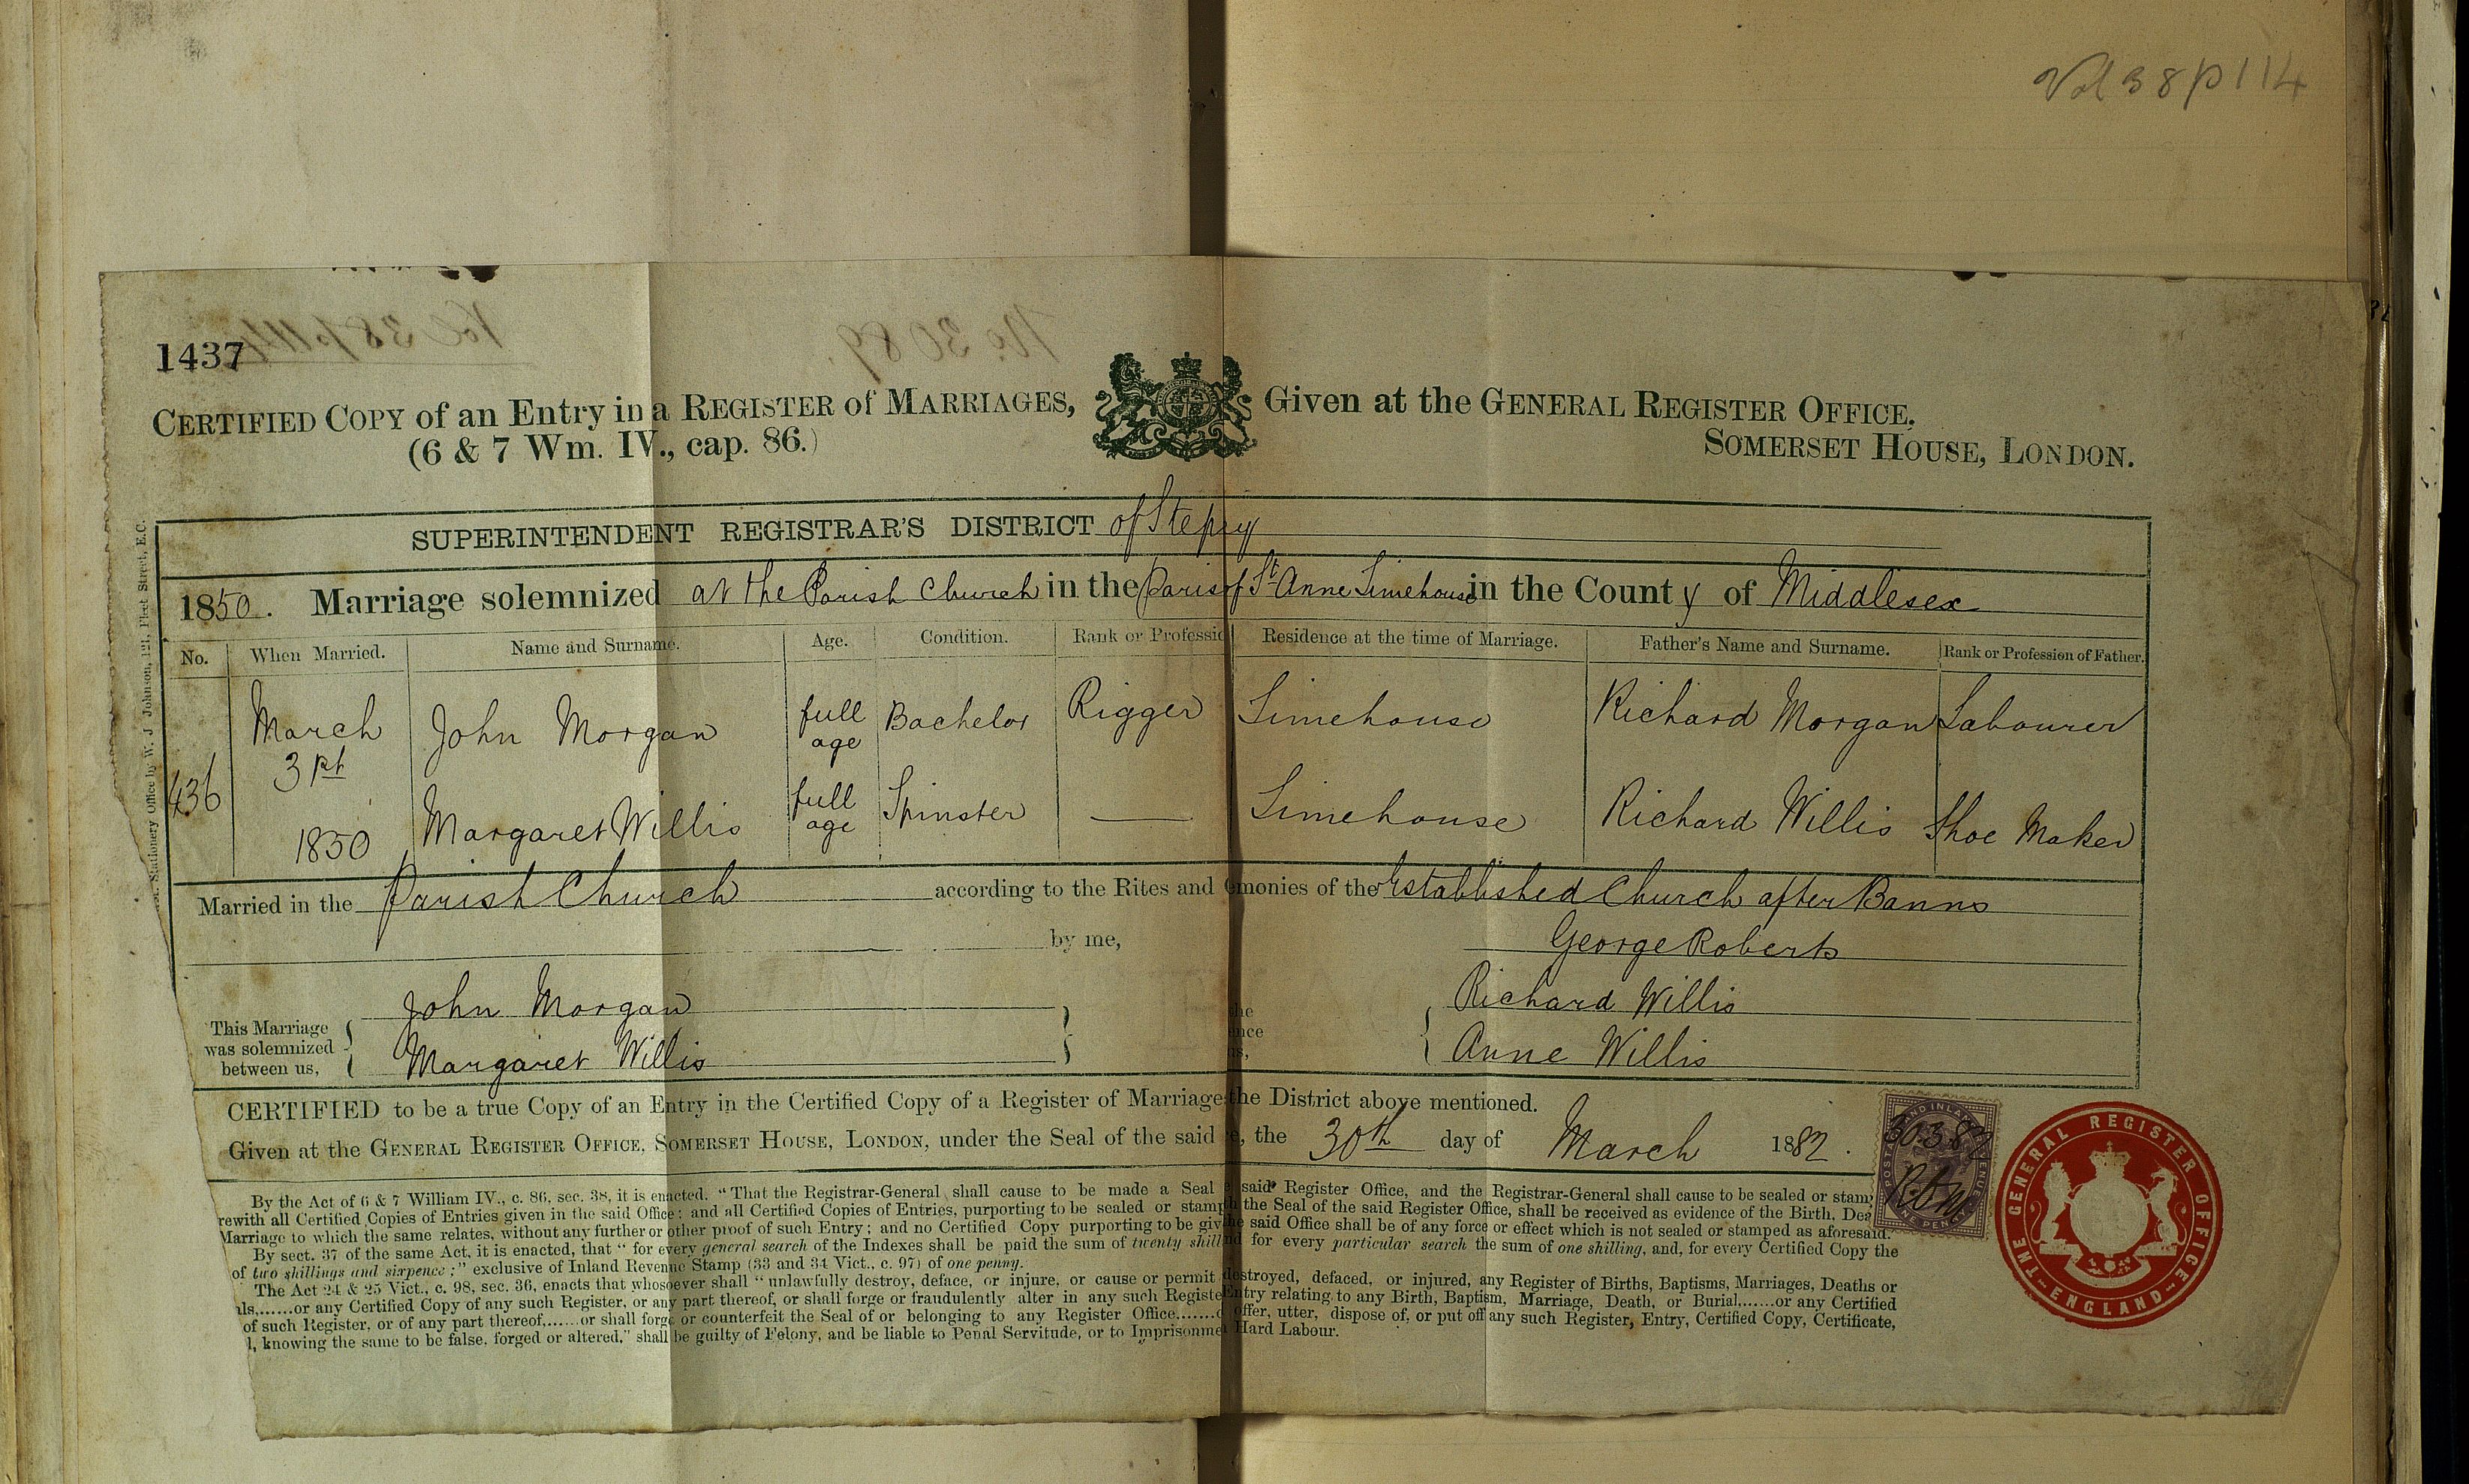 Vol 38 p 114
Vol 38 p 114
No. 3089.
1437
CERTIFIED COPY of an Entry in a REGISTER of MARRIAGES, Given at the GENERAL REGISTER OFFICE,
(6 & 7 Wm. IV., cap. 86.) SOMERSET HOUSE, LONDON.
SUPERINTENDENT REGISTRAR'S DISTRICT of Stepny
1850. Marriage solemnized at the Parish Church in the Paris of St Anne Limehouse in the County of Middlesex
No. When Married. Name and Surname. Age. Condition. Rank or Professio Residence at the time of Marriage. Father's Name and Surname. Rank or Profession of Father.
436 March 3rd 1850
John Morgan full age Bachelor Rigger Limehouse Richard Morgan Labourer
Margaret Willis full age Spinster — Limehouse Richard Willis Shoe Maker
Married in the Parish Church according to the Rites and emonies of the Established Church after Banns
by me, George Roberts
This Marriage was solemnized between us, John Morgan Richard Willis
Margaret Willis Anne Willis
CERTIFIED to be a true Copy of an Entry in the Certified Copy of a Register of Marriage the District above mentioned.
Given at the GENERAL REGISTER OFFICE, SOMERSET HOUSE, LONDON, under the Seal of the said e, the 30th day of March 1882.
By the Act of 6 & 7 William IV., c. 86, sec. 38, it is enacted, "That the Registrar-General shall cause to be made a Seal said Register Office, and the Registrar-General shall cause to be sealed or stam
rewith all Certified Copies of Entries given in the said Office; and all Certified Copies of Entries, purporting to be sealed or stamp the Seal of the said Register Office, shall be received as evidence of the Birth, Dea
Marriage to which the same relates, without any further or other proof of such Entry; and no Certified Copy purporting to be giv he said Office shall be of any force or effect which is not sealed or stamped as aforesaid."
By sect. 37 of the same Act, it is enacted, that "for every general search of the Indexes shall be paid the sum of twenty shill d for every particular search the sum of one shilling, and, for every Certified Copy the
of two shillings and sixpence;" exclusive of Inland Revenue Stamp (33 and 34 Vict., c. 97) of one penny.
The Act 24 & 25 Vict., c. 98, sec. 36, enacts that whosoever shall "unlawfully destroy, deface, or injure, or cause or permit estroyed, defaced, or injured, any Register of Births, Baptisms, Marriages, Deaths or
ls,......or any Certified Copy of any such Register, or any part thereof, or shall forge or fraudulently alter in any such Registe Entry relating to any Birth, Baptism, Marriage, Death, or Burial,......or any Certified
of such Register, or of any part thereof,......or shall forge or counterfeit the Seal of or belonging to any Register Office,......o offer, utter, dispose of, or put off any such Register, Entry, Certified Copy, Certificate,
l, knowing the same to be false, forged or altered," shall be guilty of Felony, and be liable to Penal Servitude, or to Imprisonme Hard Labour.
30.3.82
ONE PENNY
THE GENERAL REGISTER OFFICE
ENGLAND
Stationery Office by W. J. Johnson, 121, Fleet Street, E.C.